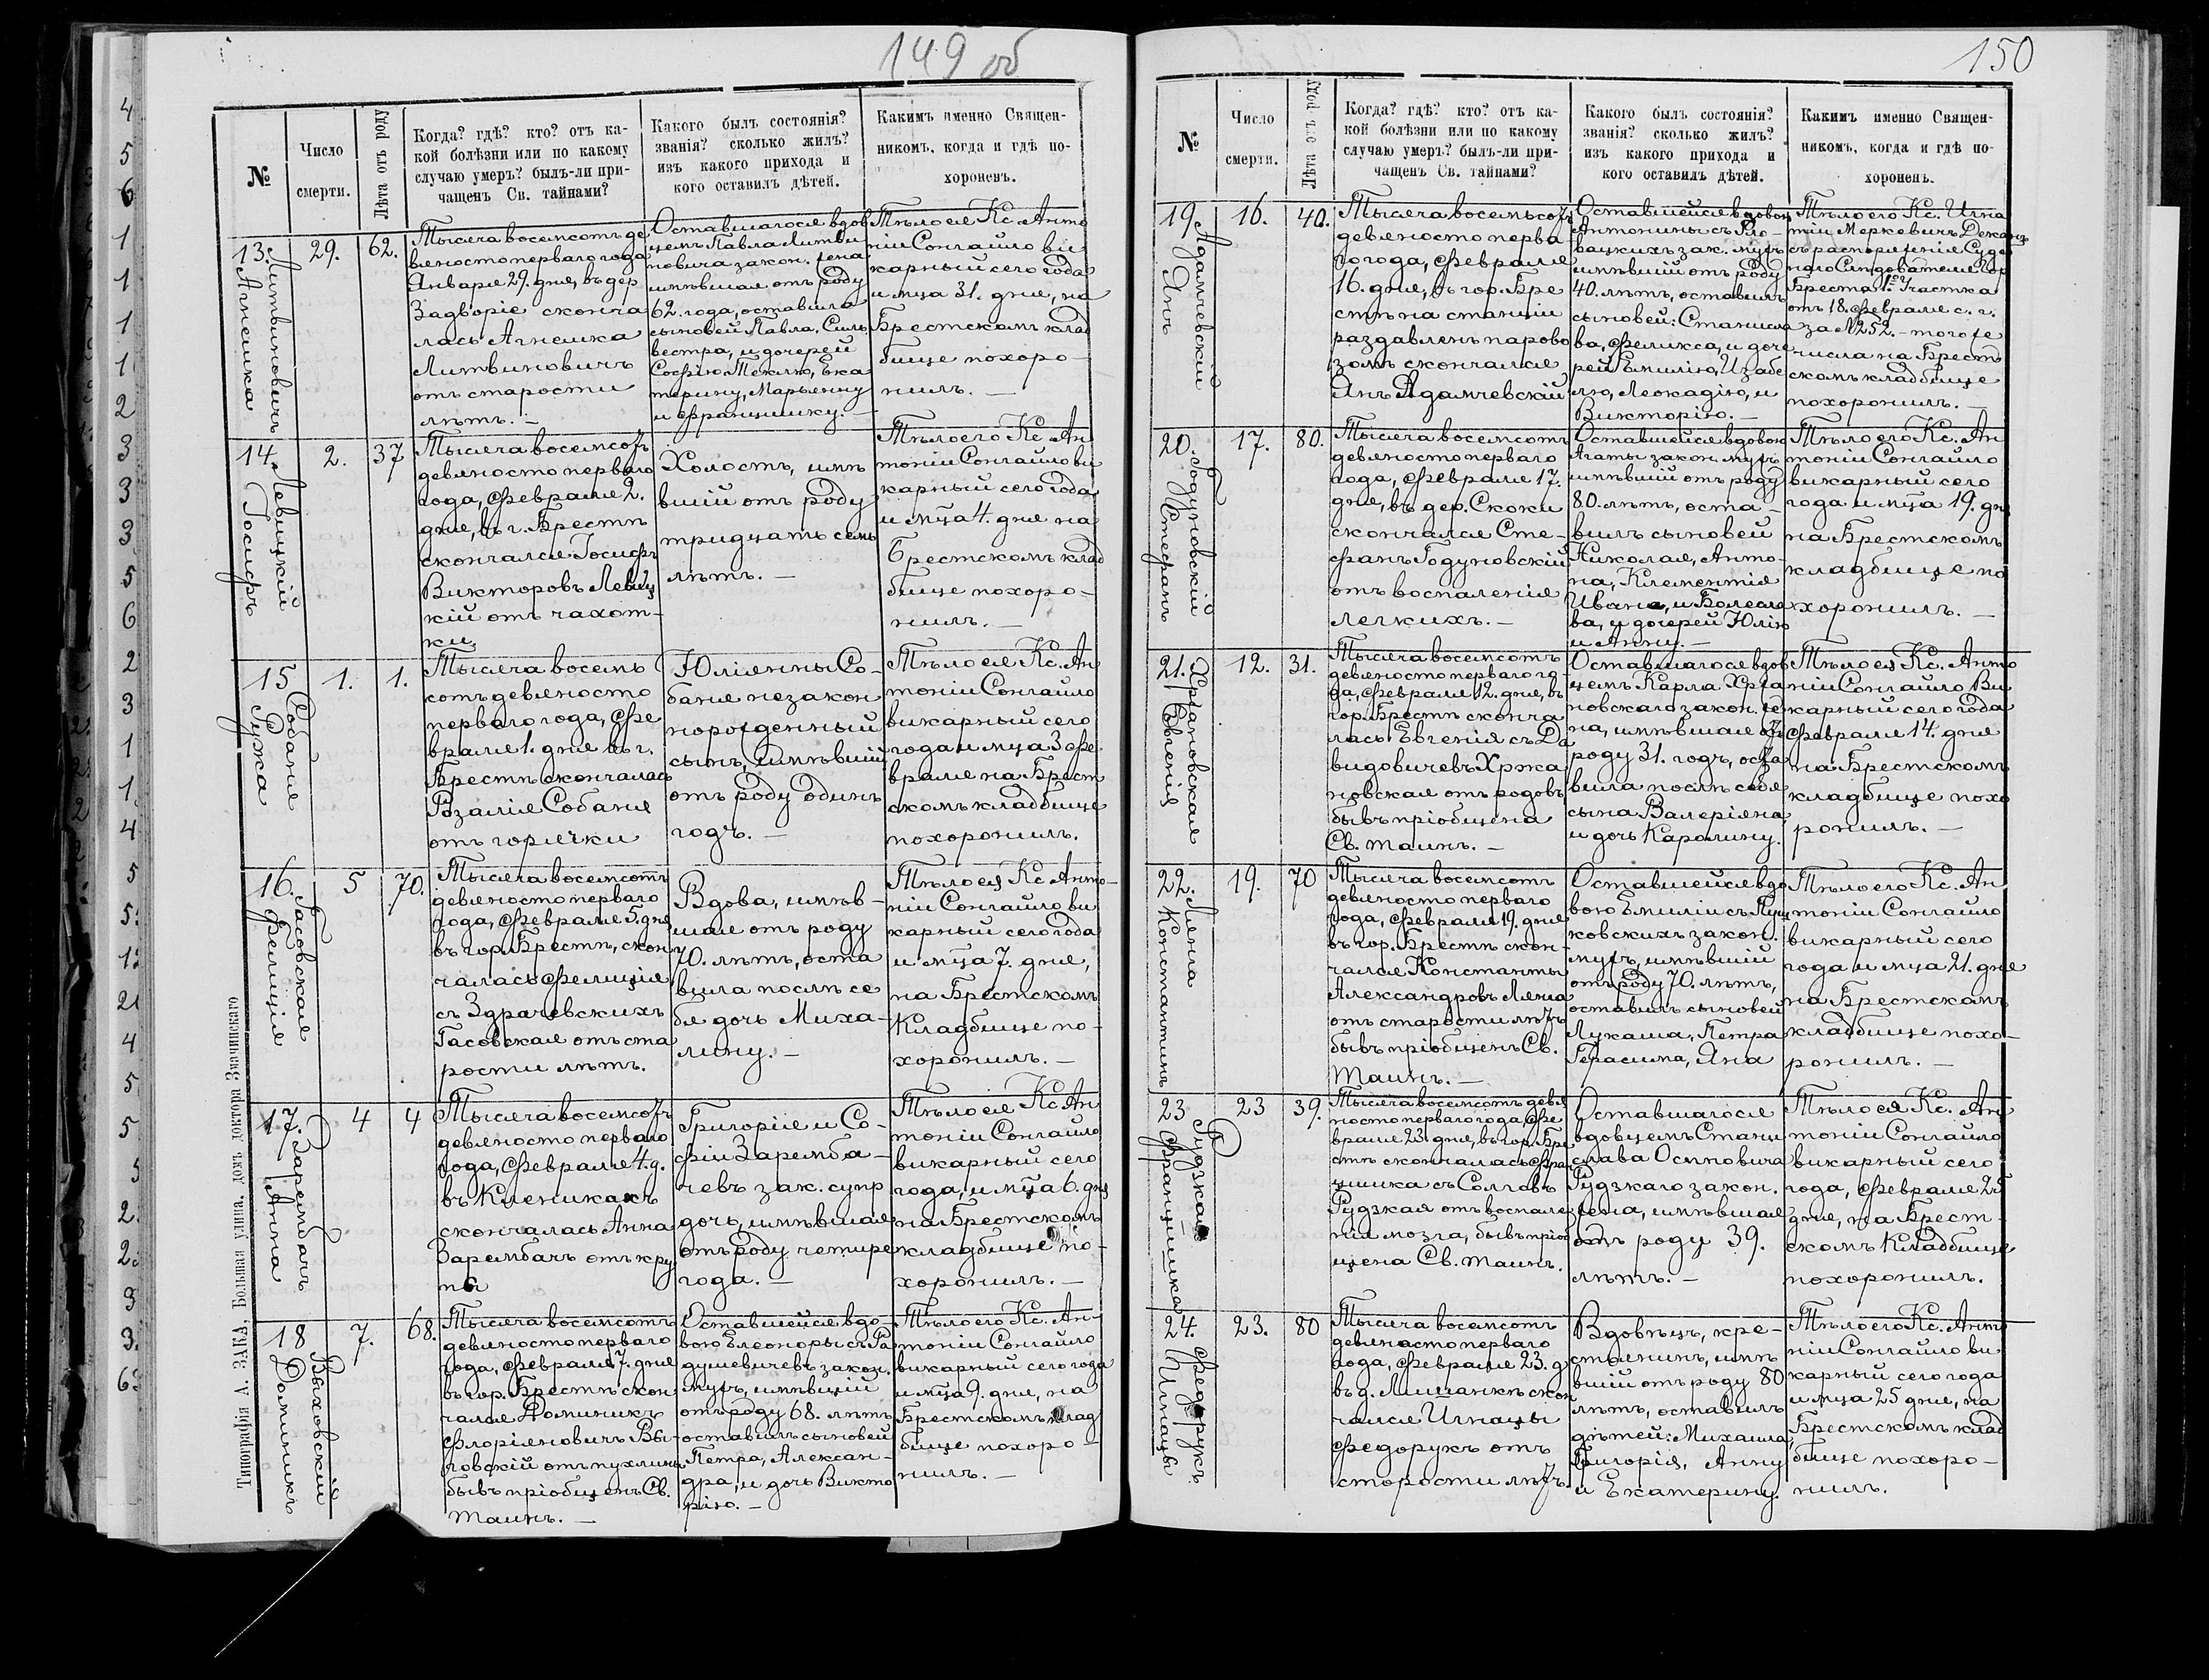 149 об
№
Число
смерти.
Лѣта отъ роду
Когда? гдѣ? кто? отъ ка-
кой болѣзни или по какому
случаю умеръ? былъ-ли при-
чащенъ Св. тайнами?
Какого былъ состоянія?
званія? сколько жилъ?
изъ какого прихода и
кого оставилъ дѣтей.
Какимъ именно Священ-
никомъ, когда и гдѣ по-
хороненъ.
13.
Литвиновичъ
Агнешка
29.
62.
Тысяча восемсотъ де
вяносто перваго года
Января 29. дня, въ дер
Задворіе сконча
лась Агнешка
Литвиновичъ
отъ старости
лѣтъ. —
Оставшагося вдов
цемъ Павла Литви
новича закон. жена
имѣвшая отъ роду
62. года, оставила
сыновей Павла, Силь
вестра, и дочерей
Софію, Теклю, Ека
терину, Марьянну
и Францишку. —
Тѣло ея Кс. Анто
ній Сонгайло ви
карный сего года
и мца 31. дня, на
Брестскомъ клад
бище похоро-
нилъ. —
14.
Левицкій
Іосифъ
2.
37
Тысяча восемсотъ
девяносто перваго
года, Февраля 2.
дня, въ г. Брестѣ
скончался Іосифъ
Викторовъ Левиц
кій отъ чахот-
ки
Холостъ, имѣ
вшій отъ роду
тридцать семь
лѣтъ. —
Тѣло его Кс. Ан
тоній Сонгайло ви
карный сего года
и мца 4. дня на
Брестскомъ клад
бище похоро-
нилъ. —
15
Собаня
Ружа
1.
1.
Тысяча восемь
сотъ девяносто
перваго года, Фе
враля 1. дня въ г.
Брестѣ скончалась
Рзалія Собаня
отъ горячки
Юліянны Со-
баня незакон
норожденный
сынъ, имѣвшій
отъ роду одинъ
годъ. —
Тѣло ея Кс. Ан
тоній Сонгайло
викарный сего
года и мца 3 Фе
враля на Брест
скомъ кладбище
похоронилъ.
16.
Гасовская
Фелиція
5
70.
Тысяча восемсотъ
девяносто перваго
года, Февраля 5. дня
въ гор. Брестѣ, скон
чалась Фелиція
съ Здрачевскихъ
Гасовская отъ ста
рости лѣтъ.
Вдова, имѣв-
шая отъ роду
70. лѣтъ, оста
вила послѣ се
бя дочь Миха-
лину. —
Тѣло ея Кс. Анто-
ній Сонгайло ви
карный сего года
и мца 7. дня,
на Брестскомъ
Кладбище по-
хоронилъ. —
17.
Зарембачъ
Анна
4
4
Тысяча восемсотъ
девяносто перваго
года, Февраля 4. д.
въ Кленикахъ
скончалась Анна
Зарембачъ отъ кру
па
Григорія и Со-
фіи Заремба-
чевъ зак. супр
дочь, имѣвшая
отъ роду четире
года. —
Тѣло ея Кс. Ан
тоній Сонгайло
викарный сего
года, и мца 6. дня
на Брестскомъ
кладбище по-
хоронилъ. —
18
Выховскій
Доминикъ
7.
68.
Тысяча восемсотъ
девяносто перваго
года, Февраля 7. дня
въ гор. Брестѣ скон
чался Доминикъ
Флоріяновичъ Вы-
ховскій отъ пухлины
бывъ пріобщенъ Св.
Таинъ. —
Оставшейся вдо-
вою Елеоноры съ Ра
душевичевъ закон.
мужъ, имѣвшій
отъ роду 68. лѣтъ
оставилъ сыновей
Петра, Алексан-
дра, и дочь Викто
рію. —
Тѣло его Кс. Ан-
тоній Сонгайло
викарный сего года
и мца 9. дня, на
Брестскомъ клад
бище похоро-
нилъ. —
Типографія А. ЗАКА, Вольная улица, домъ доктора Значинскаго
150
№
Число
смерти.
Лѣта отъ роду
Когда? гдѣ? кто? отъ ка-
кой болѣзни или по какому
случаю умеръ? былъ-ли при-
чащенъ Св. тайнами?
Какого былъ состоянія?
званія? сколько жилъ?
изъ какого прихода и
кого оставилъ дѣтей.
Какимъ именно Священ-
никомъ, когда и гдѣ по-
хороненъ.
19
Адамчевскій
Янъ
16.
40.
Тысяча восемьсотъ
девяносто перва
го года, Февраля
16. дня, въ гор. Бре
стѣ на станціи
раздавленъ парово
зомъ скончался
Янъ Адамчевскій
Оставшейся вдовою
Антонины съ Гло-
вацкихъ зак. мужъ
имѣвшій отъ роду
40. лѣтъ, оставилъ
сыновей: Станисла
ва, Феликса, и доче
рей Емилію, Изабе
лю, Леокадію, и
Викторію. —
Тѣло его Кс. Игна
тій Меркевичъ Деканъ
съ распоряженія Суде
бнаго Слѣдователя Гор
Бреста 1го Участка
отъ 18. Февраля с. г.
за № 252. — того же
числа на Брест
скомъ кладбище
похоронилъ. —
20.
Годуновскій
Стефанъ
17.
80.
Тысяча восемсотъ
девяносто перваго
года, Февраля 17.
дня, въ дер. Скоки
скончался Сте-
фанъ Годуновскій
отъ воспаленія
легкихъ. —
Оставшейся вдовою
Агаты закон. мужъ
имѣвшій отъ роду
80. лѣтъ, оста-
вилъ сыновей
Николая, Анто-
на, Клементія
Ивана, и Болесла
ва, и дочерей Юлію
и Анну. —
Тѣло его Кс. Ан
тоній Сонгайло
викарный сего
года и мца 19. дня
на Брестскомъ
кладбище по
хоронилъ. —
21.
Хржановская
Евгенія
12.
31.
Тысяча восемсотъ
девяносто перваго го-
да, Февраля 12. дня, въ
гор. Брестѣ сконча
лась Евгенія съ Да
видовичевъ Хржа
новская отъ родовъ
бывъ пріобщена
Св. таинъ. —
Оставшагося вдов
цемъ Карла Хржа
новскаго закон. же
на, имѣвшая отъ
роду 31. годъ, оста
вила послѣ себя
сына Валеріяна,
и дочь Каролину.
Тѣло ея Кс. Анто
ній Сонгайло Ви
карный сего года
Февраля 14. дня
на Брестскомъ
кладбище похо
ронилъ. —
22.
Ляпа
Константинъ
19.
70
Тысяча восемсотъ
девяносто перваго
года, Февраля 19. дня
въ гор. Брестѣ скон-
чался Константы
Александровъ Ляпа
отъ старости лѣтъ
бывъ пріобщенъ Св.
Таинъ. —
Оставшейся вдо
вою Емиліи съ
ковскихъ закон.
мужъ, имѣвшій
отъ роду 70. лѣтъ,
оставилъ сыновей
Лукаша, Петра
Герасима, Яна
Тѣло его Кс. Ан
тоній Сонгайло
викарный сего
года и мца 21. дня
на Брестскомъ
кладбище похо-
ронилъ. —
23
Рудзкая
Францишка
23
39.
Тысяча восемсотъ девя
носто перваго года, Фе
враля 23. дня, въ гор. Бре
стѣ скончалась Фран
цишка съ
Рудзкая отъ воспале
нія мозга, бывъ пріоб
щена Св. таинъ.
Оставшагося
вдовцемъ Стани
слава Осиповича
Рудзкаго закон.
жена, имѣвшая
отъ роду 39.
лѣтъ. —
Тѣло ея Кс. Ан
тоній Сонгайло
викарный сего
года, Февраля 25
дня, на Брест-
скомъ Кладбище
похоронилъ.
24.
Федорукъ
Игнацы
23.
80
Тысяча восемсотъ
девяносто перваго
года, Февраля 23. д
въ д. скон
чался Игнацы
Федорукъ отъ
сторости лѣтъ.
Вдовѣцъ, кре-
стянинъ, имѣ
вшій отъ роду 80
лѣтъ, оставилъ
дѣтей: Михаила,
Григорія, Анну
и Екатерину.
Тѣло его Кс. Анто
ній Сонгайло ви
карный сего года
и мца 25 дня, на
Брестскомъ клад
бище похоро-
нилъ.